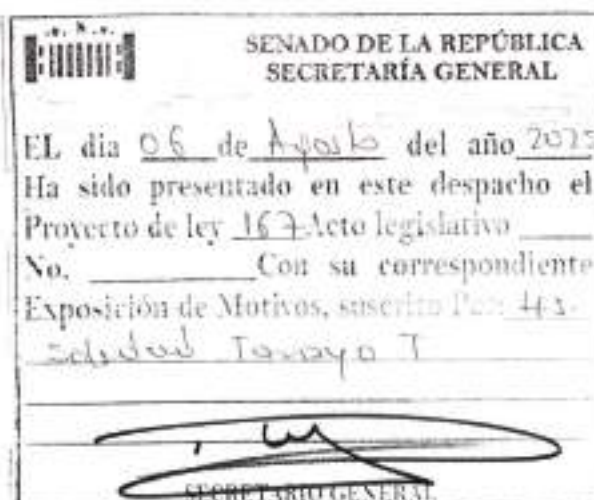 SENADO DE LA REPÚBLICA
SECRETARÍA GENERAL
EL dia 06 de Agosto del año 2025
Ha sido presentado en este despacho el
Proyecto de ley 167 Acto legislativo
No. Con su correspondiente
Exposición de Motivos, suscrito Por: H.S.
Soledad Tamayo T
SECRETARIO GENERAL